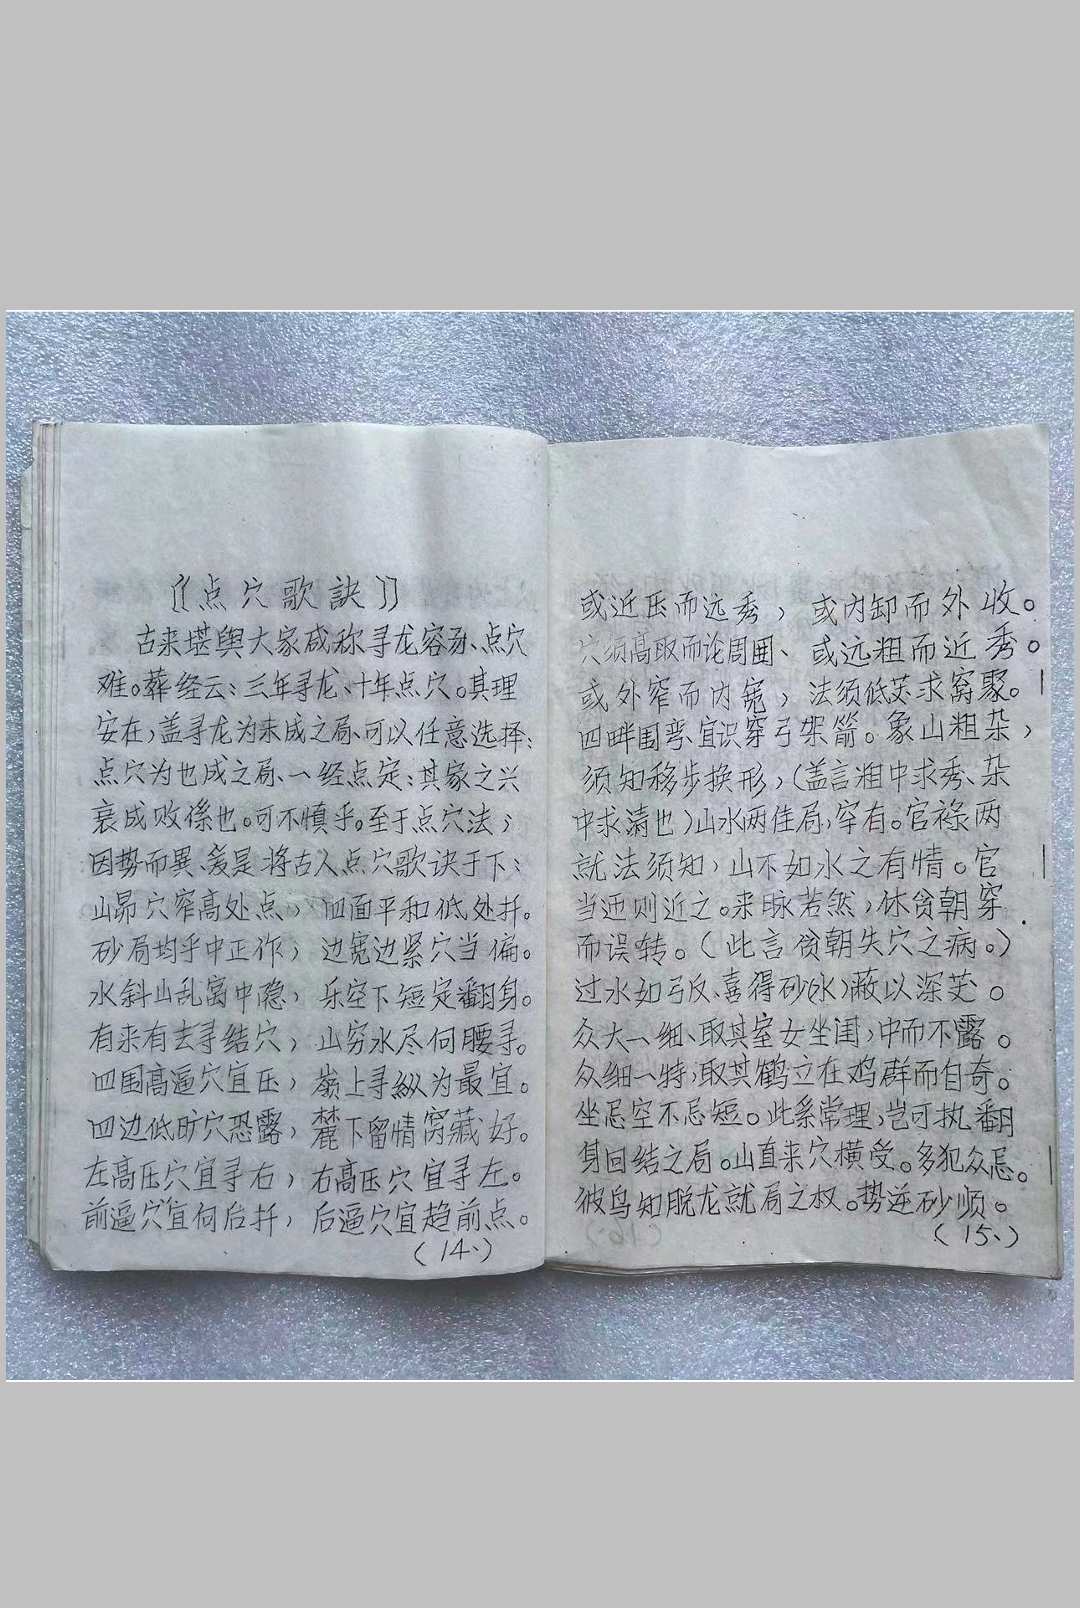 〖点穴歌訣〗
古来堪舆大家咸称寻龙容易、点穴
难。葬经云:三年寻龙、十年点穴。其理
安在,盖寻龙为未成之局、可以任意选择;
点穴为已成之局、一经点定;其家之兴
衰成败係也。可不慎乎。至于点穴法;
因势而異、爰是将古人点穴歌诀于下:
山昂穴窄高处点, 四面平和低处扦。
砂局均乎中正作, 边宽边紧穴当偏。
水斜山乱窝中隐, 乐空下短定翻身。
有来有去寻结穴, 山穷水尽何腰寻。
四围高逼穴宜压, 嶺上寻縱为最宜。
四边低旷穴恐露, 麓下留情窝藏好。
左高压穴宜寻右, 右高压穴宜寻左。
前逼穴宜向后扦, 后逼穴宜趋前点。
(14、)
或近压而远秀, 或内卸而外收。
穴须高取而论周围、或远粗而近秀。
或外窄而内宽, 法须低茓求窝聚。
四畔围弯、宜识穿弓架箭。象山粗杂,
须知移步换形,(盖言粗中求秀、杂
中求清也)山水两佳局,罕有。官禄两
就法须知, 山不如水之有情。官
当迊则近之。来脉若然,休贪朝穿
而误转。(此言贪朝失穴之病。)
过水如弓反、喜得砂(水)蔽以深茓。
众大一细、取其室女坐闺,中而不露。
众细一特,取其鹤立在鸡群而自奇。
坐忌空不忌短。此系常理,岂可执翻
身回结之局。山直来穴横受。多犯众忌。
彼鸟知脱龙就局之权。势逆砂顺。
(15、)